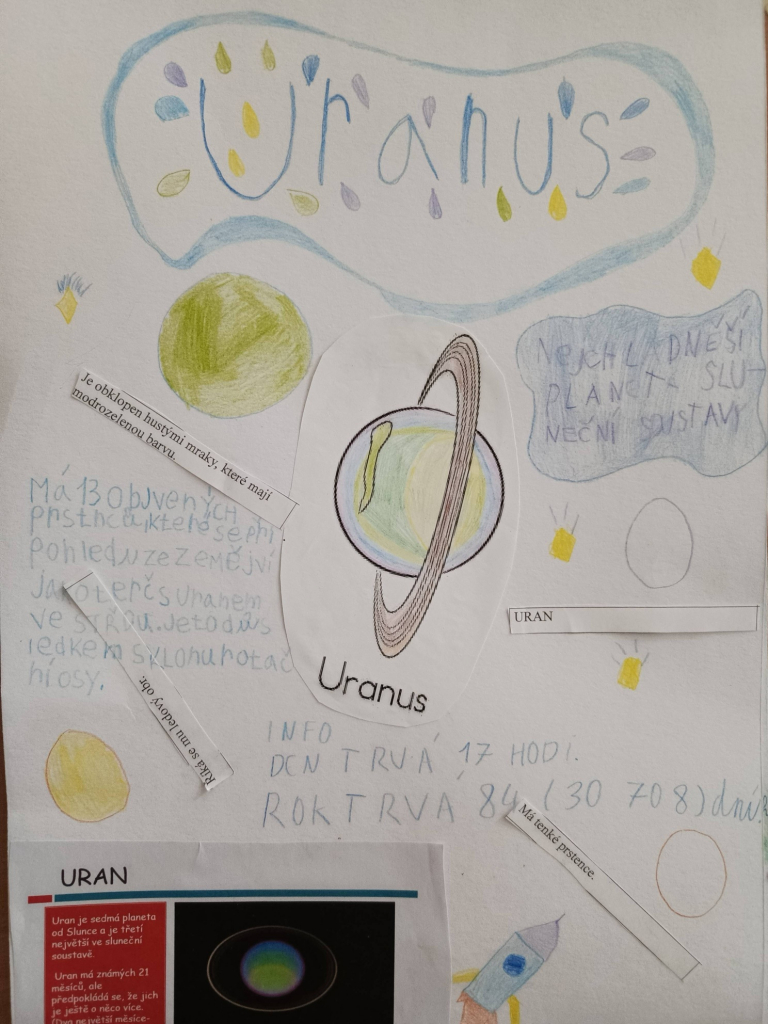 Uranus
NEJCHLADNĚŠÍ
PLANETA SLU-
NEČNÍ SOUSTAVY
Je obklopen hustými mraky, které mají
modrozelenou barvu.
Má 13 objvených
prstnců, které se při
pohledu ze zemějví
jako terč s Uranem
ve středu. Je to důs
ledkem sklonu rotač
ní osy.
URAN
Říká se mu ledový obr.
Uranus
INFO
DEN TRVÁ 17 HODI.
ROK TRVÁ 84 (30 708) dní
Má tenké prstence.
URAN
Uran je sedmá planeta
od Slunce a je třetí
největší ve sluneční
soustavě.
Uran má známých 21
měsíců, ale
předpokládá se, že jich
je ještě o něco více.
(Dva největší měsíce-